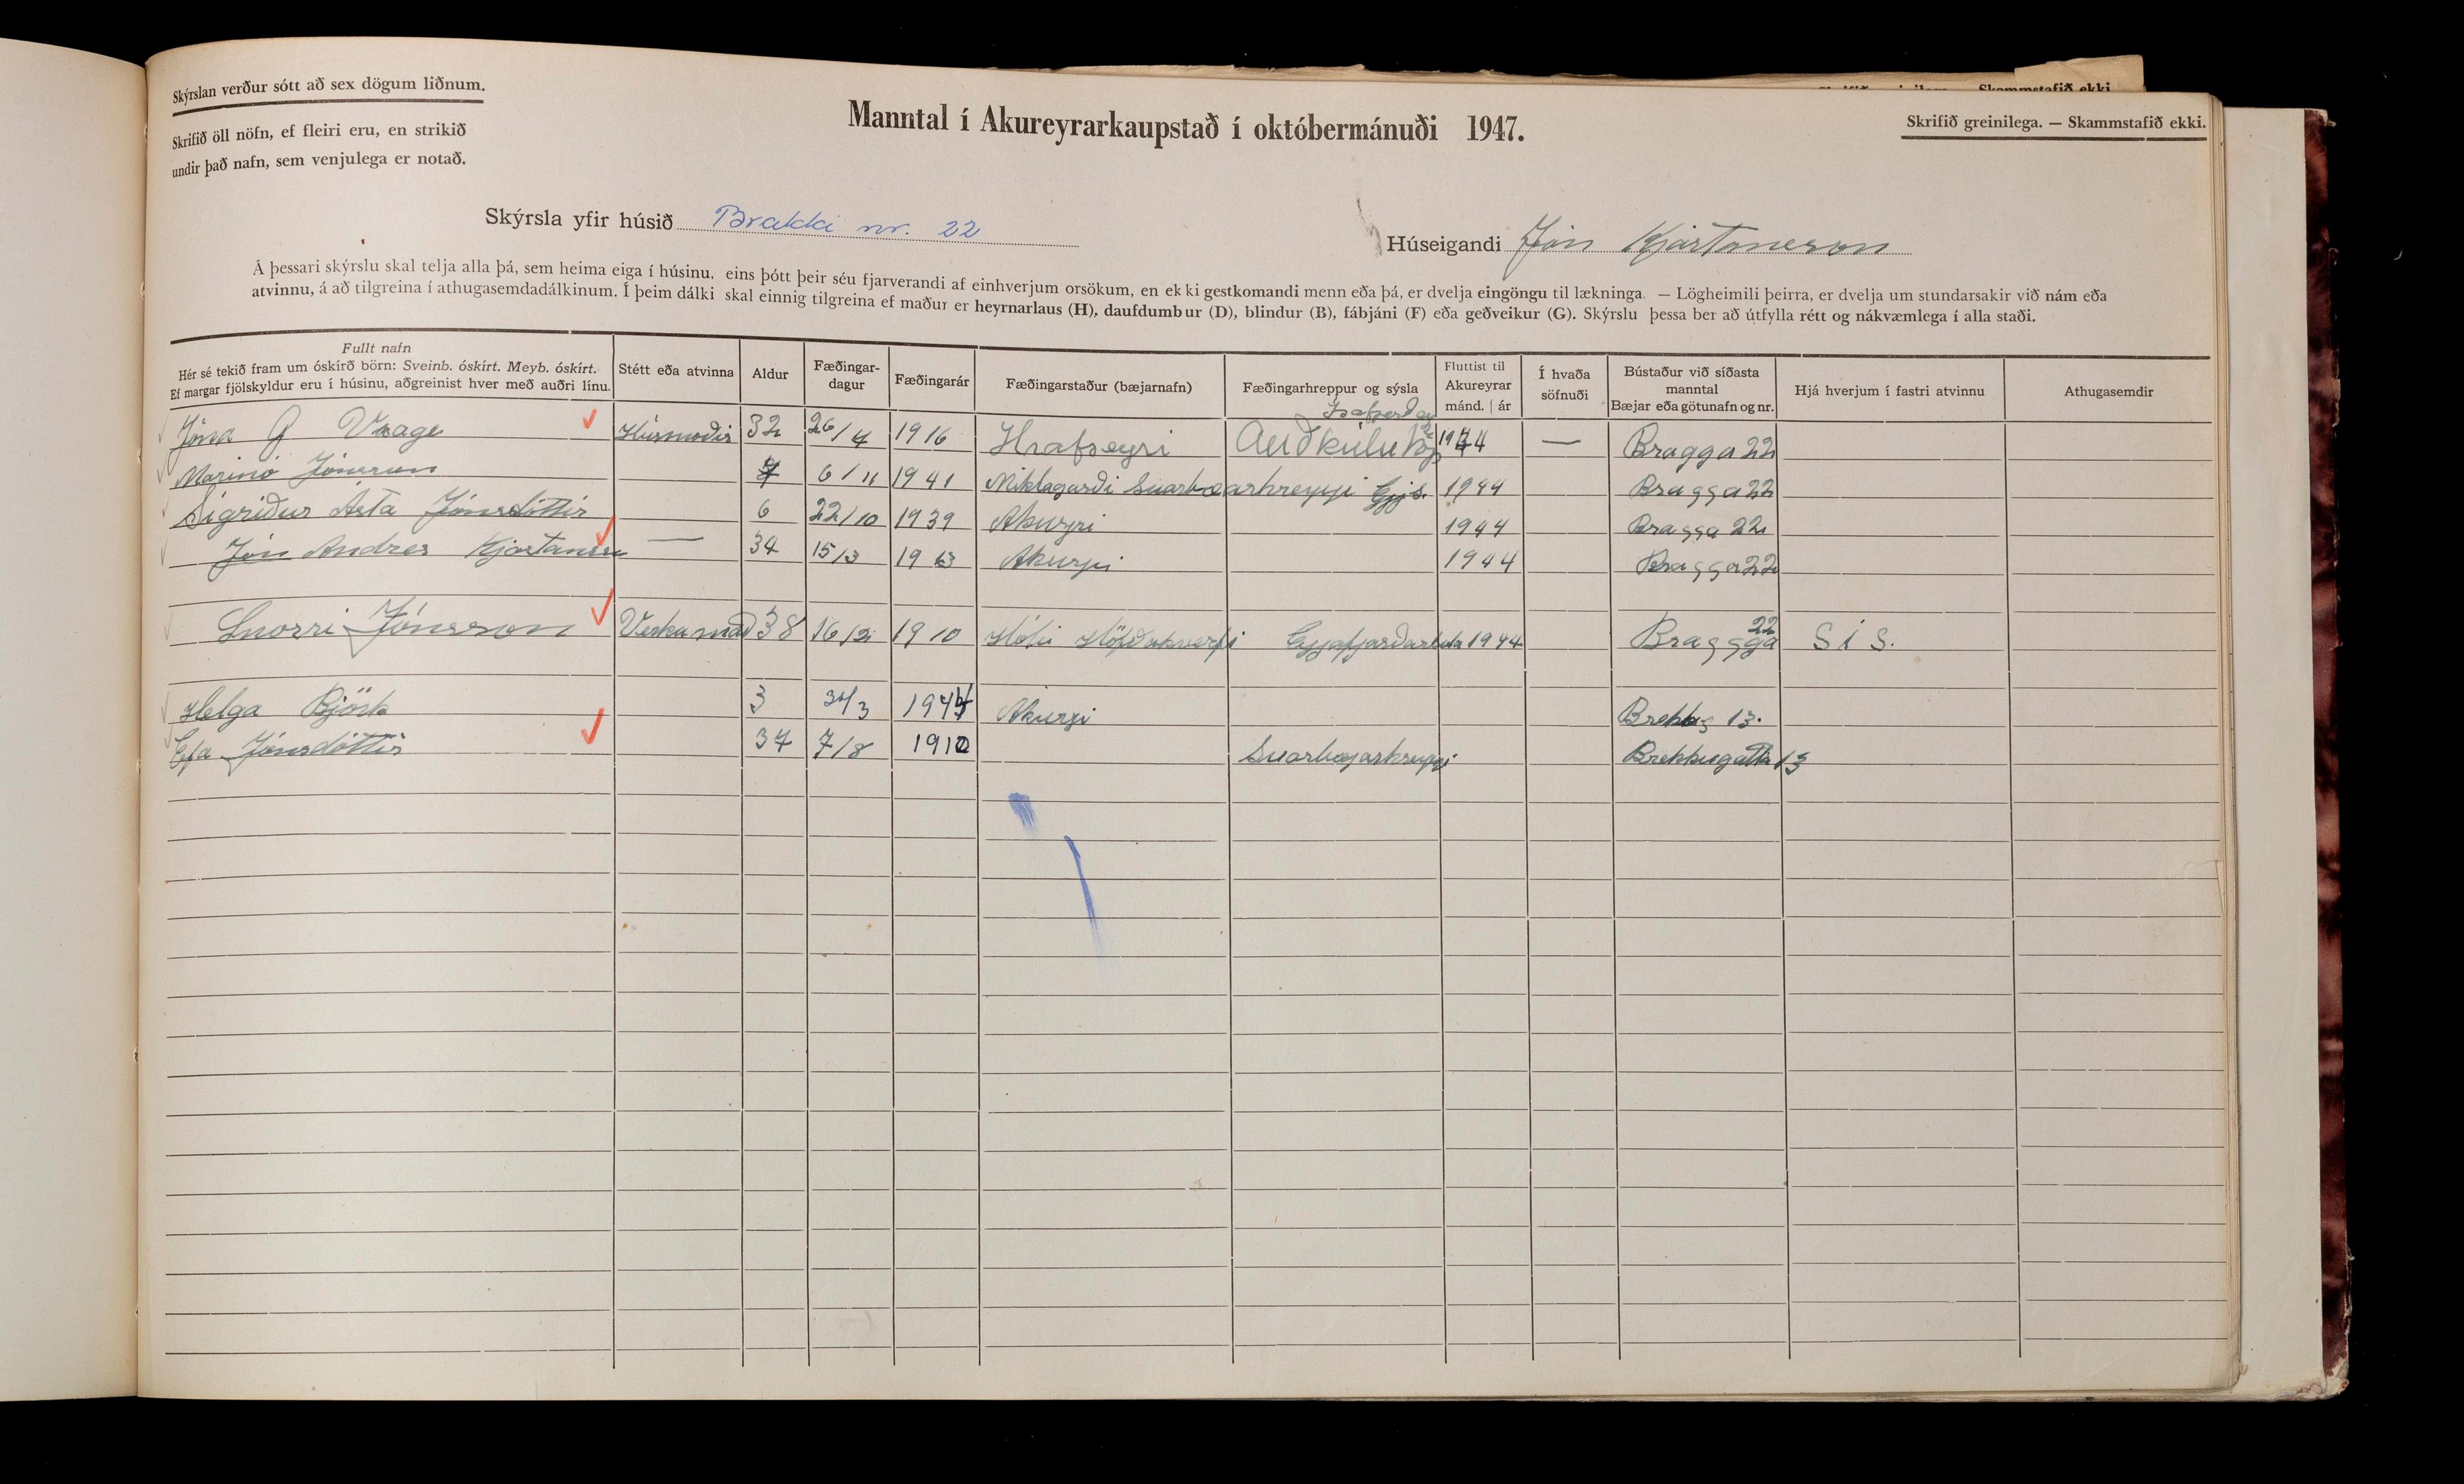 Skýrslan verður sótt að sex dögum liðnum.
Skrifið öll nöfn, ef fleiri eru, en strikið
undir það nafn, sem venjulega er notað.
Manntal í Akureyrarkaupstað í októbermánuði 1947.
Skrifið greinilega. — Skammstafið ekki.
Skýrsla yfir húsið Brakki nr. 22
Húseigandi Jón Kjartansson
Á þessari skýrslu skal telja alla þá, sem heima eiga í húsinu, eins þótt þeir séu fjarverandi af einhverjum orsökum, en ekki gestkomandi menn eða þá, er dvelja eingöngu til lækninga. — Lögheimili þeirra, er dvelja um stundarsakir við nám eða
atvinnu, á að tilgreina í athugasemdadálkinum. Í þeim dálki skal einnig tilgreina ef maður er heyrnarlaus (H), daufdumbur (D), blindur (B), fábjáni (F) eða geðveikur (G). Skýrslu þessa ber að útfylla rétt og nákvæmlega í alla staði.
Fullt nafn
Hér sé tekið fram um óskírð börn: Sveinb. óskírt. Meyb. óskírt.
Ef margar fjölskyldur eru í húsinu, aðgreinist hver með auðri línu.
Stétt eða atvinna
Aldur
Fæðingar-
dagur
Fæðingarár
Fæðingarstaður (bæjarnafn)
Fæðingarhreppur og sýsla
Fluttist til
Akureyrar
mánd. | ár
Í hvaða
söfnuði
Bústaður við síðasta
manntal
Bæjar eða götunafn og nr.
Hjá hverjum í fastri atvinnu
Athugasemdir
Jóna G Vaage Húsmoðir 32 26/4 1916 Hrafseyri Auðkúlu 1944 — Bragga 22
Marinó Jónsson 6/11 1941 Miklagarði Saurbæarhreppi Eyjs. 1944 Bragga 22
Sigriður Ásta Jónsdóttir 6 22/10 1939 Akureyri 1944 Bragga 22
Jón Andres Kjartansson — 34 15/3 1913 Akureyri 1944 Bragga 22
Snorri Jónsson Verkamað 38 16/2 1910 Hóli Höfðahverfi Eyjafjarðars 1944 Braggga 22 S Í S.
Helga Björk 3 1944 Akureyri Brekkug 13.
Efa Jónsdóttir 37 7/8 1910 Saurbæjarhreppi Brekkugata 13